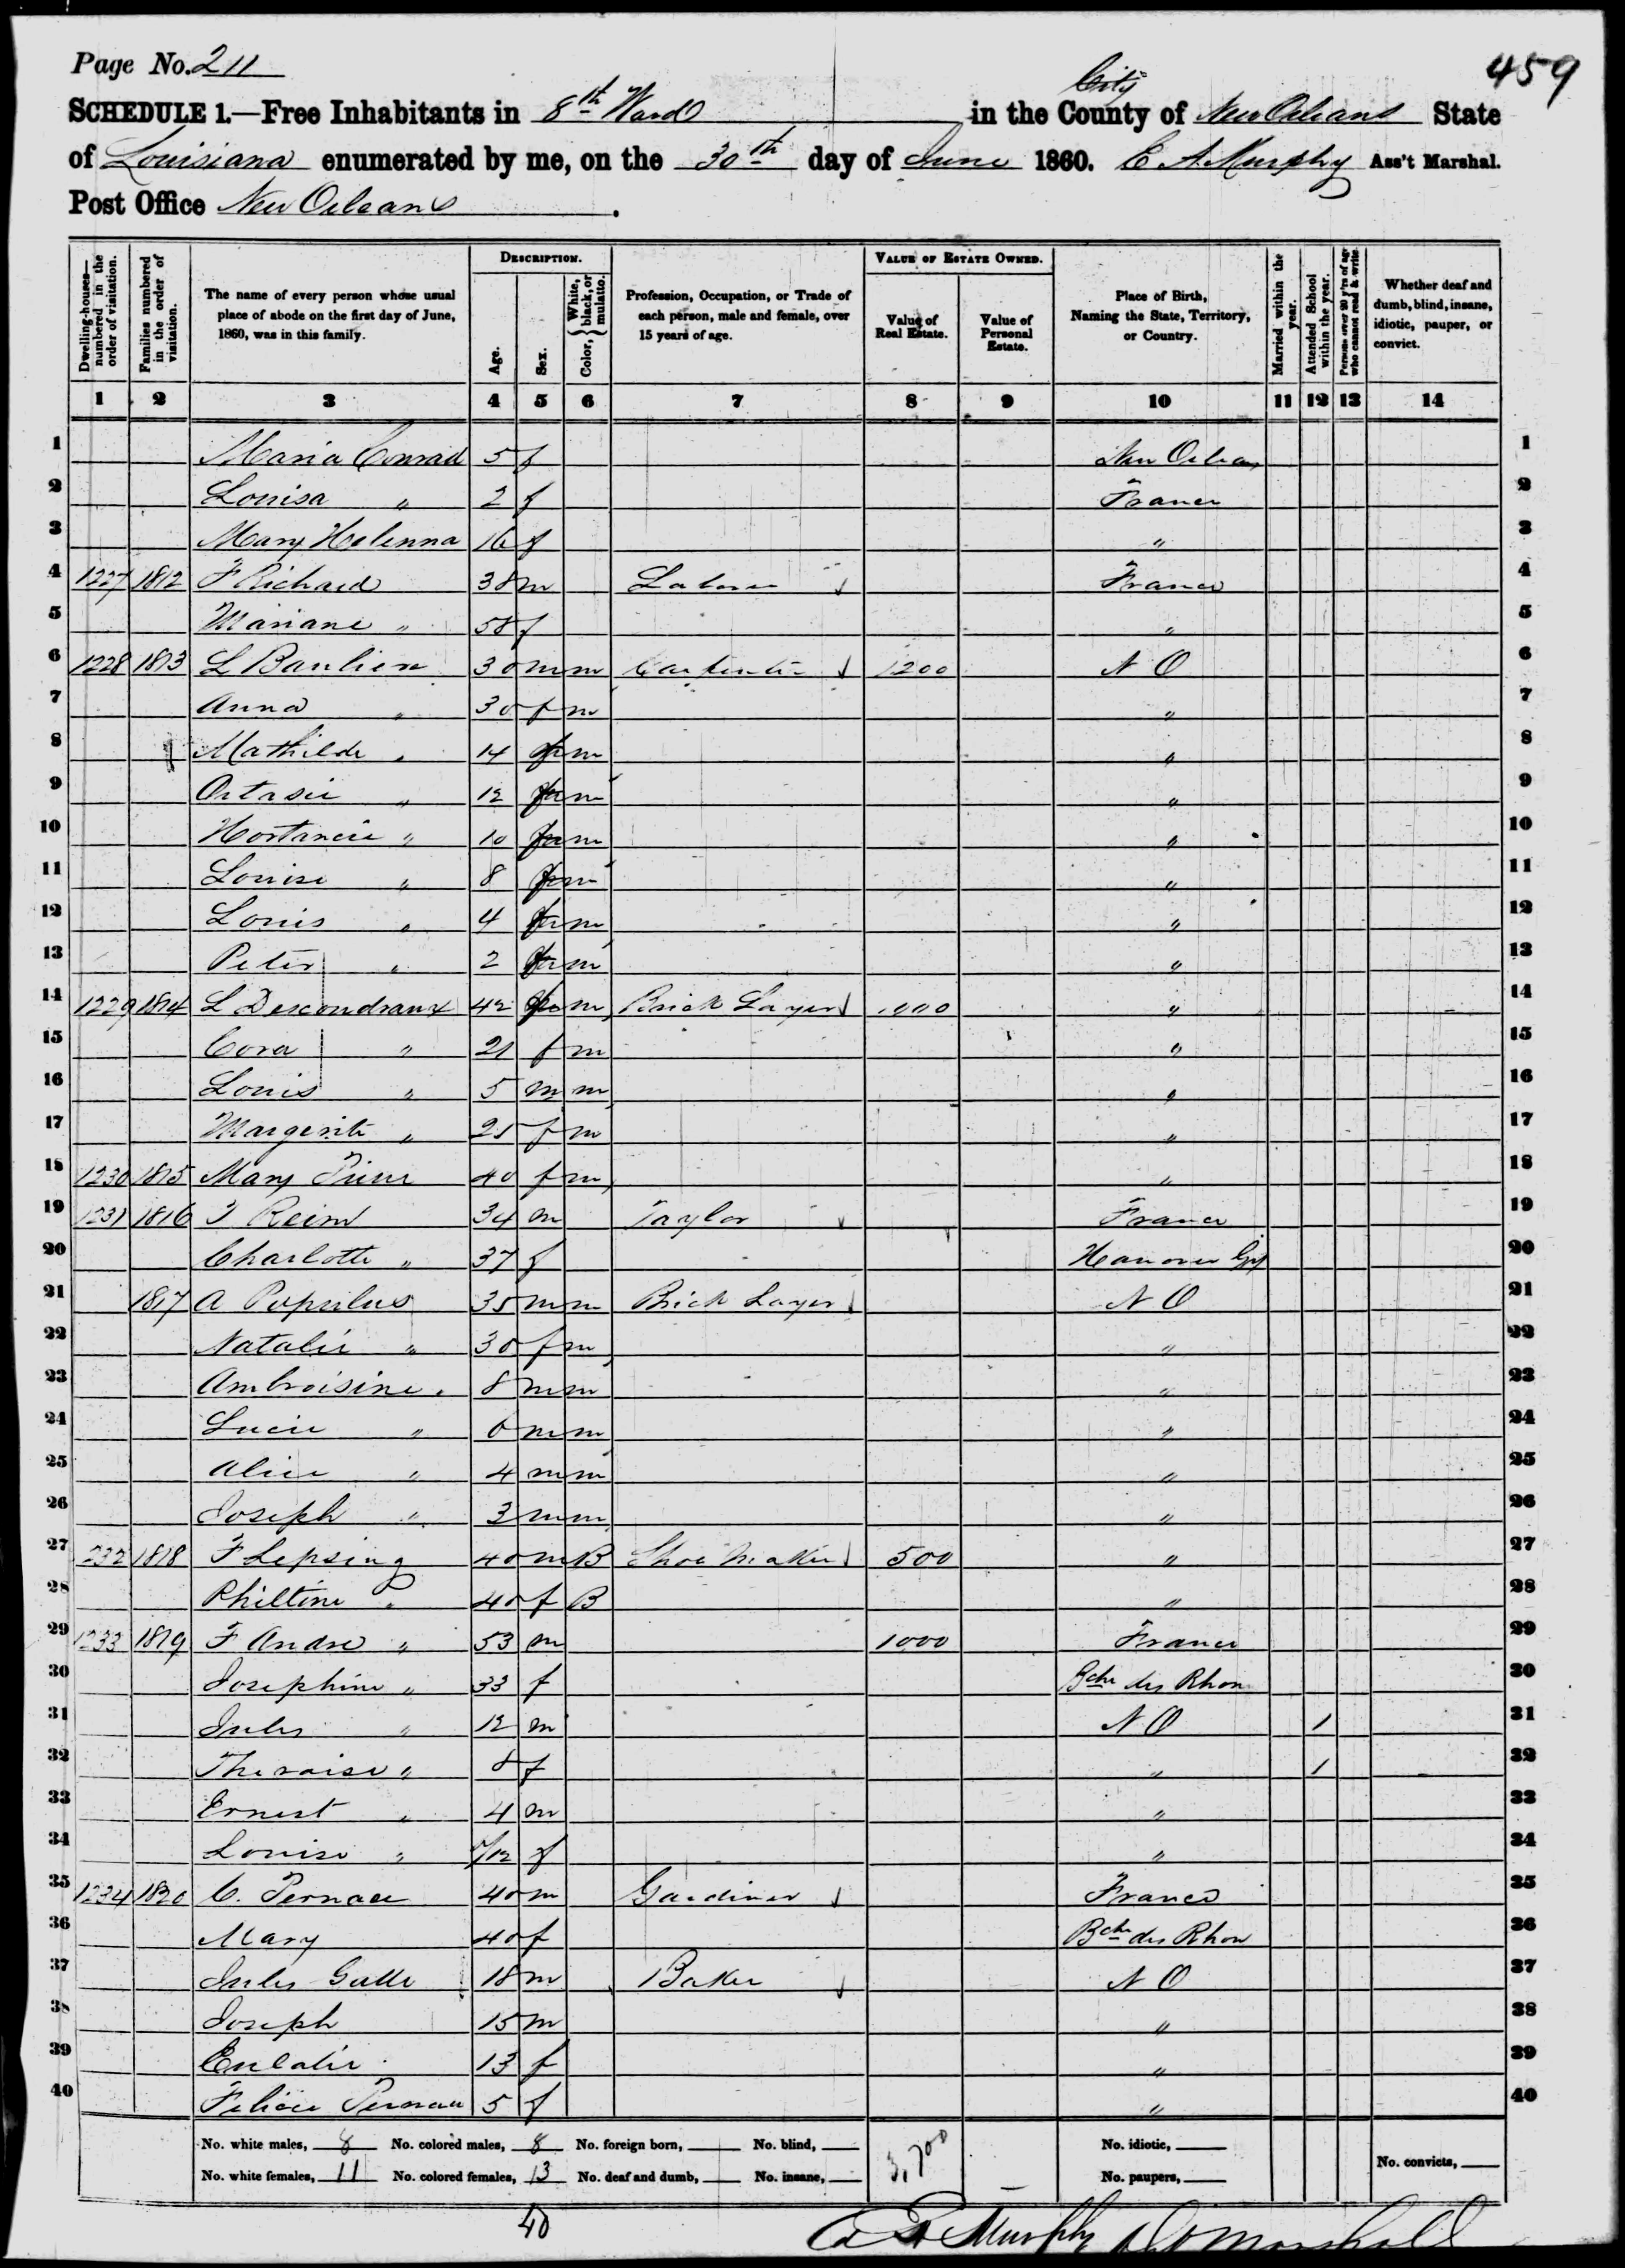 Page No. 211
459
City
SCHEDULE 1.—Free Inhabitants in 8th Ward in the County of New Orleans State
of Louisiana enumerated by me, on the 30th day of June 1860. E A Murphy Ass't Marshal.
Post Office New Orleans.
Dwelling-houses—numbered in the order of visitation.
Families numbered in the order of visitation.
The name of every person whose usual place of abode on the first day of June, 1860, was in this family.
DESCRIPTION.
Age.
Sex.
Color, { White, black, or mulatto.
Profession, Occupation, or Trade of each person, male and female, over 15 years of age.
VALUE OF ESTATE OWNED.
Value of Real Estate.
Value of Personal Estate.
Place of Birth, Naming the State, Territory, or Country.
Married within the year.
Attended School within the year.
Persons over 20 y'rs of age who cannot read & write.
Whether deaf and dumb, blind, insane, idiotic, pauper, or convict.
1 2 3 4 5 6 7 8 9 10 11 12 13 14
1 Maria Conrad 5 f New Orleans 1
2 Louisa " 2 f France 2
3 Mary Helenna 16 f " 3
4 1227 1812 F Richard 38 m France 4
5 Mariane " 58 f " 5
6 1228 1813 L Baulieu 30 m m Carpenter 1200 N O 6
7 Anna " 30 f m " 7
8 Mathilde " 14 m " 8
9 Ortasie " 12 m " 9
10 Hortancie " 10 m " 10
11 Louise " 8 m " 11
12 Louis " 4 m " 12
13 Peter " 2 m " 13
14 1229 1814 L Descondraux 42 m Brick Layer " 14
15 Cora " 21 f m " 15
16 Louis " 5 m m " 16
17 Margerite " 25 f m " 17
18 1230 1815 Mary 40 f m " 18
19 1231 1816 34 m Taylor France 19
20 Charlotte " 37 f Hanover 20
21 1817 A Populus 35 m m Brick Layer N O 21
22 Natalie " 30 f m " 22
23 Ambroisine " 8 m m " 23
24 Lucie " 6 m m " 24
25 Alice " 4 m m " 25
26 Joseph " 3 m m " 26
27 1232 1818 F Lepsing 40 m B Shoe Maker 500 " 27
28 Philtine " 40 f B " 28
29 1233 1819 F Andre " 53 m 1000 France 29
30 Josephine " 33 f Bche des Rhon 30
31 Jules " 12 m N O 1 31
32 Theraise " 8 f " 1 32
33 Ernest " 4 m " 33
34 Louise " f " 34
35 1234 1820 C. Pernau 40 m Gardiner France 35
36 Mary 40 f Bche des Rhon 36
37 Jules 18 m Baker N O 37
38 Joseph 15 m " 38
39 Eulalie 13 f " 39
40 Felicie Pernau 5 f " 40
No. white males, 8 No. colored males, 8 No. foreign born, No. blind, 3,700 No. idiotic,
No. white females, 11 No. colored females, 13 No. deaf and dumb, No. insane, No. paupers, No. convicts,
40
E A Murphy Marshall